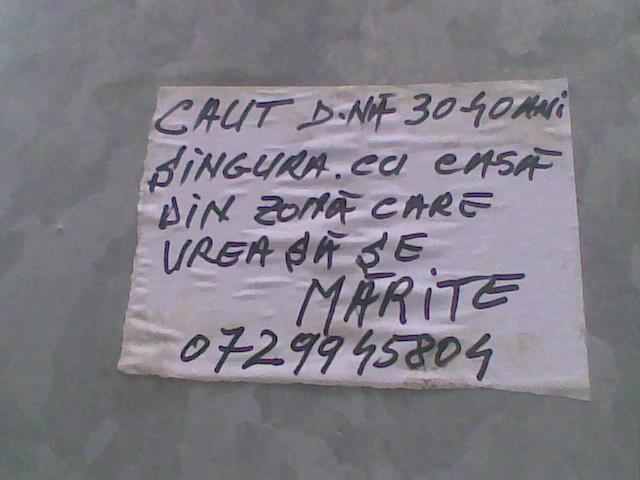 CAUT D-NĂ 30-40 ANi
ȘiNGURA. CU CASĂ
DiN ZONĂ CARE
VREA ȘĂ ȘE
MĂRiTE
0729945804